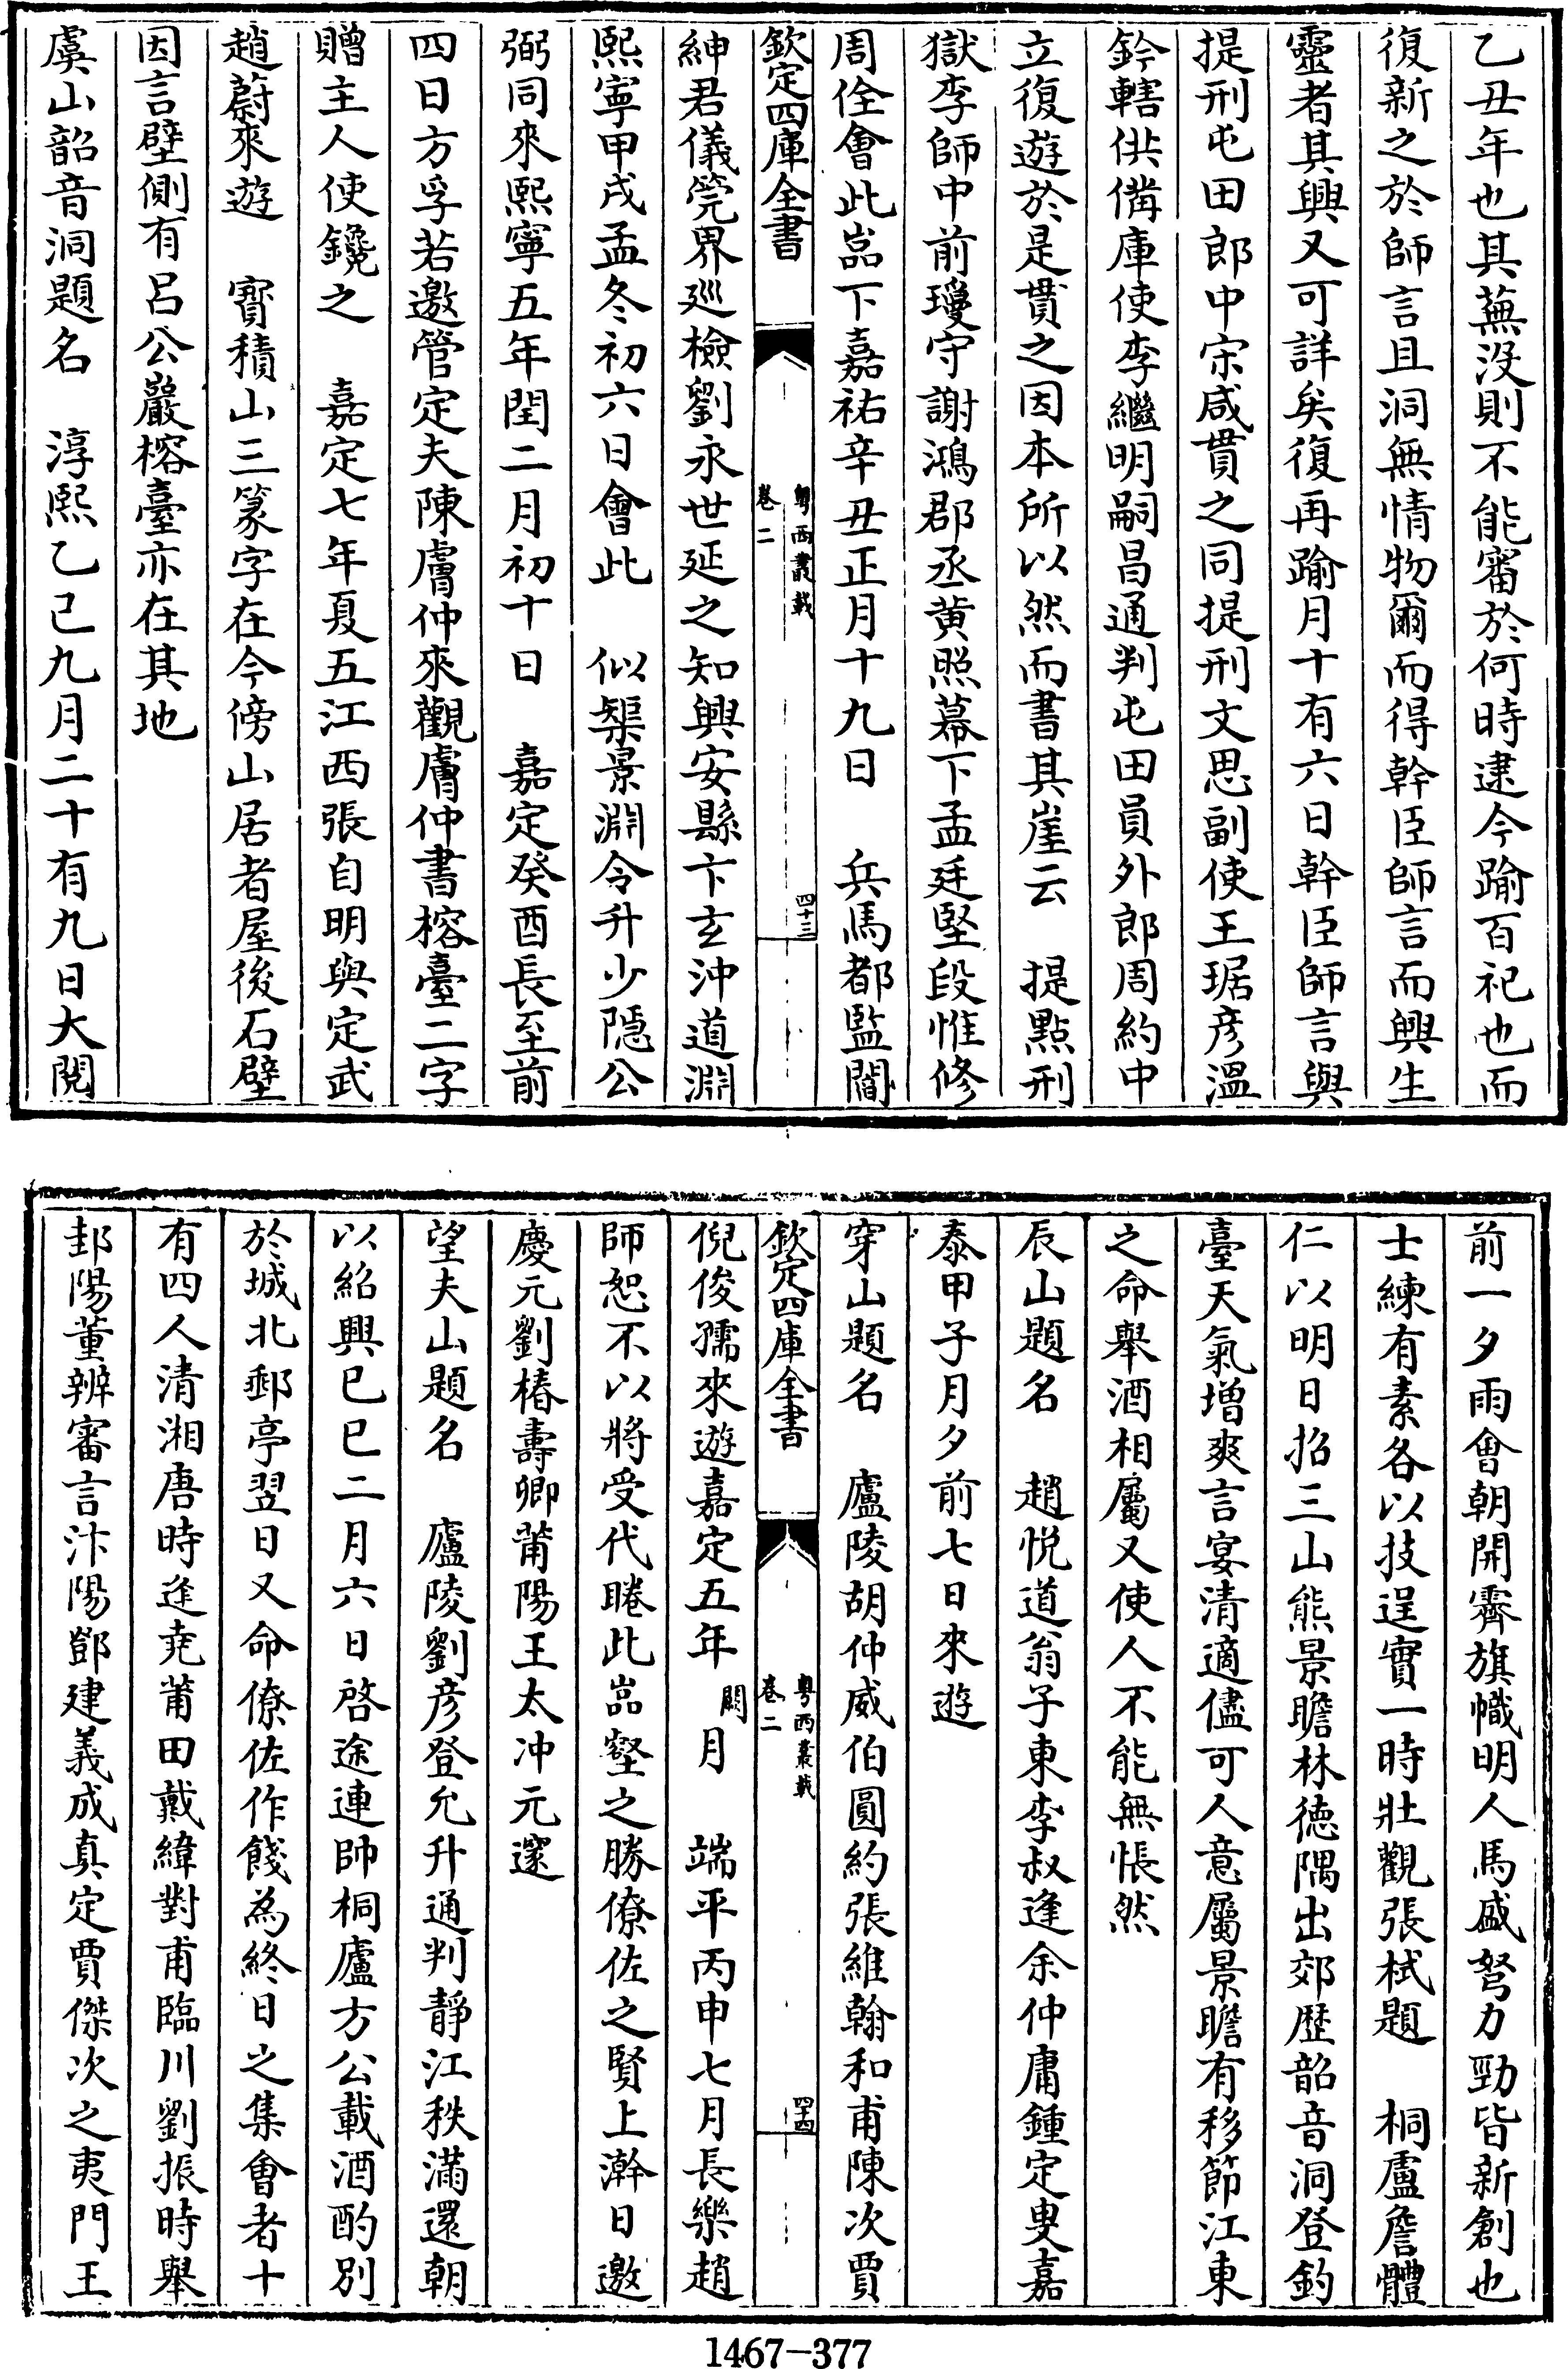 乙丑年也其蕪没則不能審於何時逮今踰百祀也而
復新之於師言且洞無情物爾而得幹臣師言而興生
靈者其興又可詳矣復再踰月十有六日幹臣師言與
提刑屯田郎中宋咸貫之同提刑文思副使王琚彦溫
鈐轄供備庫使李繼明嗣昌通判屯田員外郎周約中
立復遊於是貫之因本所以然而書其崖云　提點刑
獄李師中前瓊守謝鴻郡丞黄照幕下孟廷堅段惟修
周佺會此嵓下嘉祐辛丑正月十九日　兵馬都監閻
欽定四庫全書
粤西叢載
卷二
四十三
紳君儀筦界廵檢劉永世延之知興安縣卞玄沖道淵
熙寧甲戌孟冬初六日會此　似榘景淵令升少隱公
弼同來熙寧五年閏二月初十日　嘉定癸酉長至前
四日方孚若邀管定夫陳膚仲來觀膚仲書榕臺二字
贈主人使鑱之　嘉定七年夏五江西張自明與定武
趙蔚來遊　寶積山三篆字在今傍山居者屋後石壁
因言壁側有吕公巖榕臺亦在其地
虞山韶音洞題名　淳熙乙已九月二十有九日大閱
前一夕雨會朝開霽旗幟明人馬盛弩力勁皆新創也
士練有素各以技逞實一時壯觀張栻題　桐廬詹體
仁以明日招三山熊景瞻林德隅出郊歴韶音洞登釣
臺天氣增爽言宴清適儘可人意屬景瞻有移節江東
之命舉酒相屬又使人不能無悵然
辰山題名　趙悦道翁子東李叔逢余仲庸鍾定叟嘉
泰甲子月夕前七日來遊
穿山題名　盧陵胡仲威伯圓約張維翰和甫陳次賈
欽定四庫全書
粤西叢載
卷二
四十四
倪俊孺來遊嘉定五年闕月　端平丙申七月長樂趙
師恕不以將受代睠此嵓壑之勝僚佐之賢上澣日邀
慶元劉椿壽卿莆陽王太冲元邃
望夫山題名　廬陵劉彦登允升通判靜江秩滿還朝
以紹興已巳二月六日啓途連帥桐廬方公載酒酌别
於城北郵亭翌日又命僚佐作餞為終日之集會者十
有四人清湘唐時逹尭莆田戴緯對甫臨川劉振時舉
邽陽董辨審言汴陽鄧建義成真定賈傑次之夷門王
1467-377